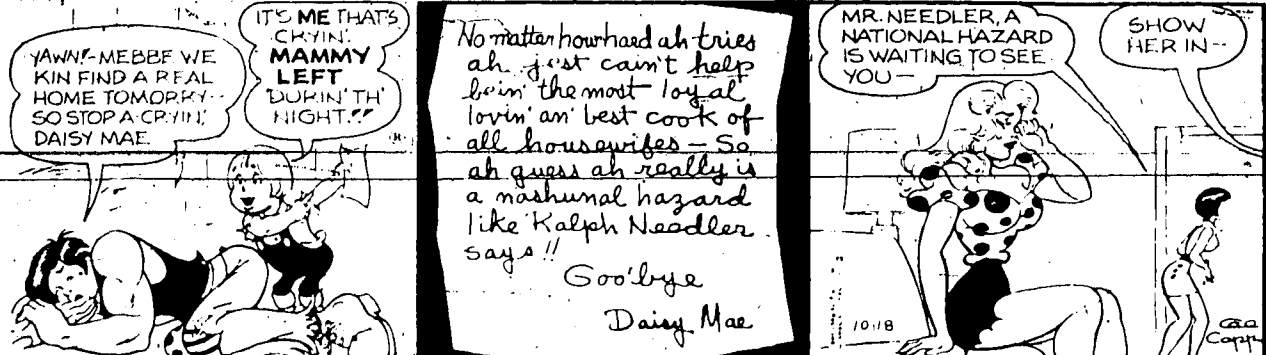 YAWN!!-MEBBE WE
KIN FIND A REAL
HOME TOMORRY--
SO STOP A-CRYIN',
DAISY MAE
IT'S ME THAT'S
CRYIN'.
MAMMY
LEFT
DURIN' TH'
NIGHT!!
No matter how hard ah tries
ah just cain't help
bein' the most loyal
lovin' an' best cook of
all housewifes - So
ah guess ah really is
a nashunal hazard
like Ralph Needler
says!!
Goo'bye
Daisy Mae
MR. NEEDLER, A
NATIONAL HAZARD
IS WAITING TO SEE
YOU—
SHOW
HER IN--
10-18
Capp